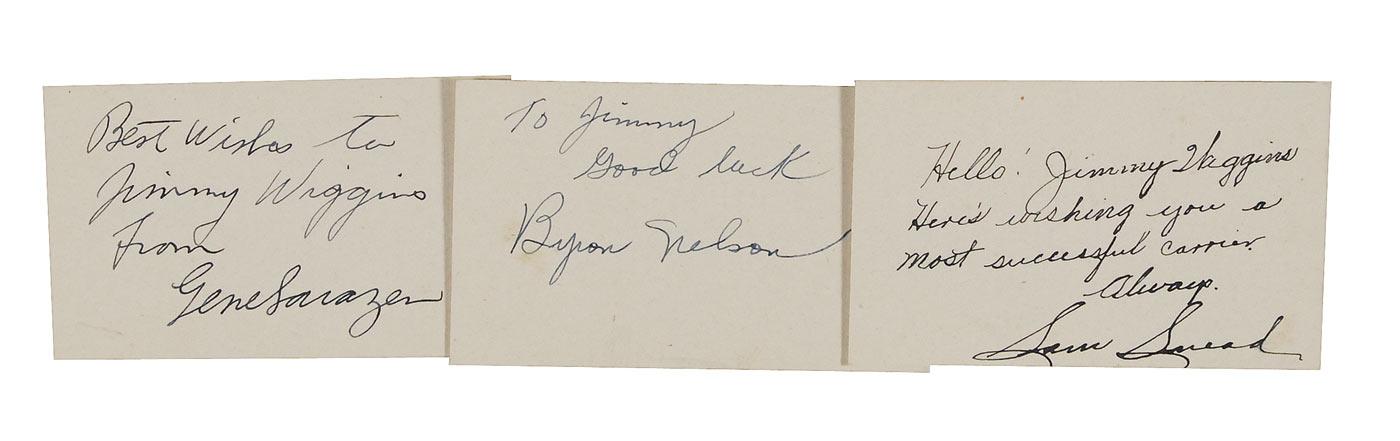 Best Wishes to
Jimmy Wiggins
from
Gene Sarazen
To Jimmy
Good luck
Byron Nelson
Hello! Jimmy Wiggins
Here's wishing you a
most successful carrier.
Always.
Sam Snead